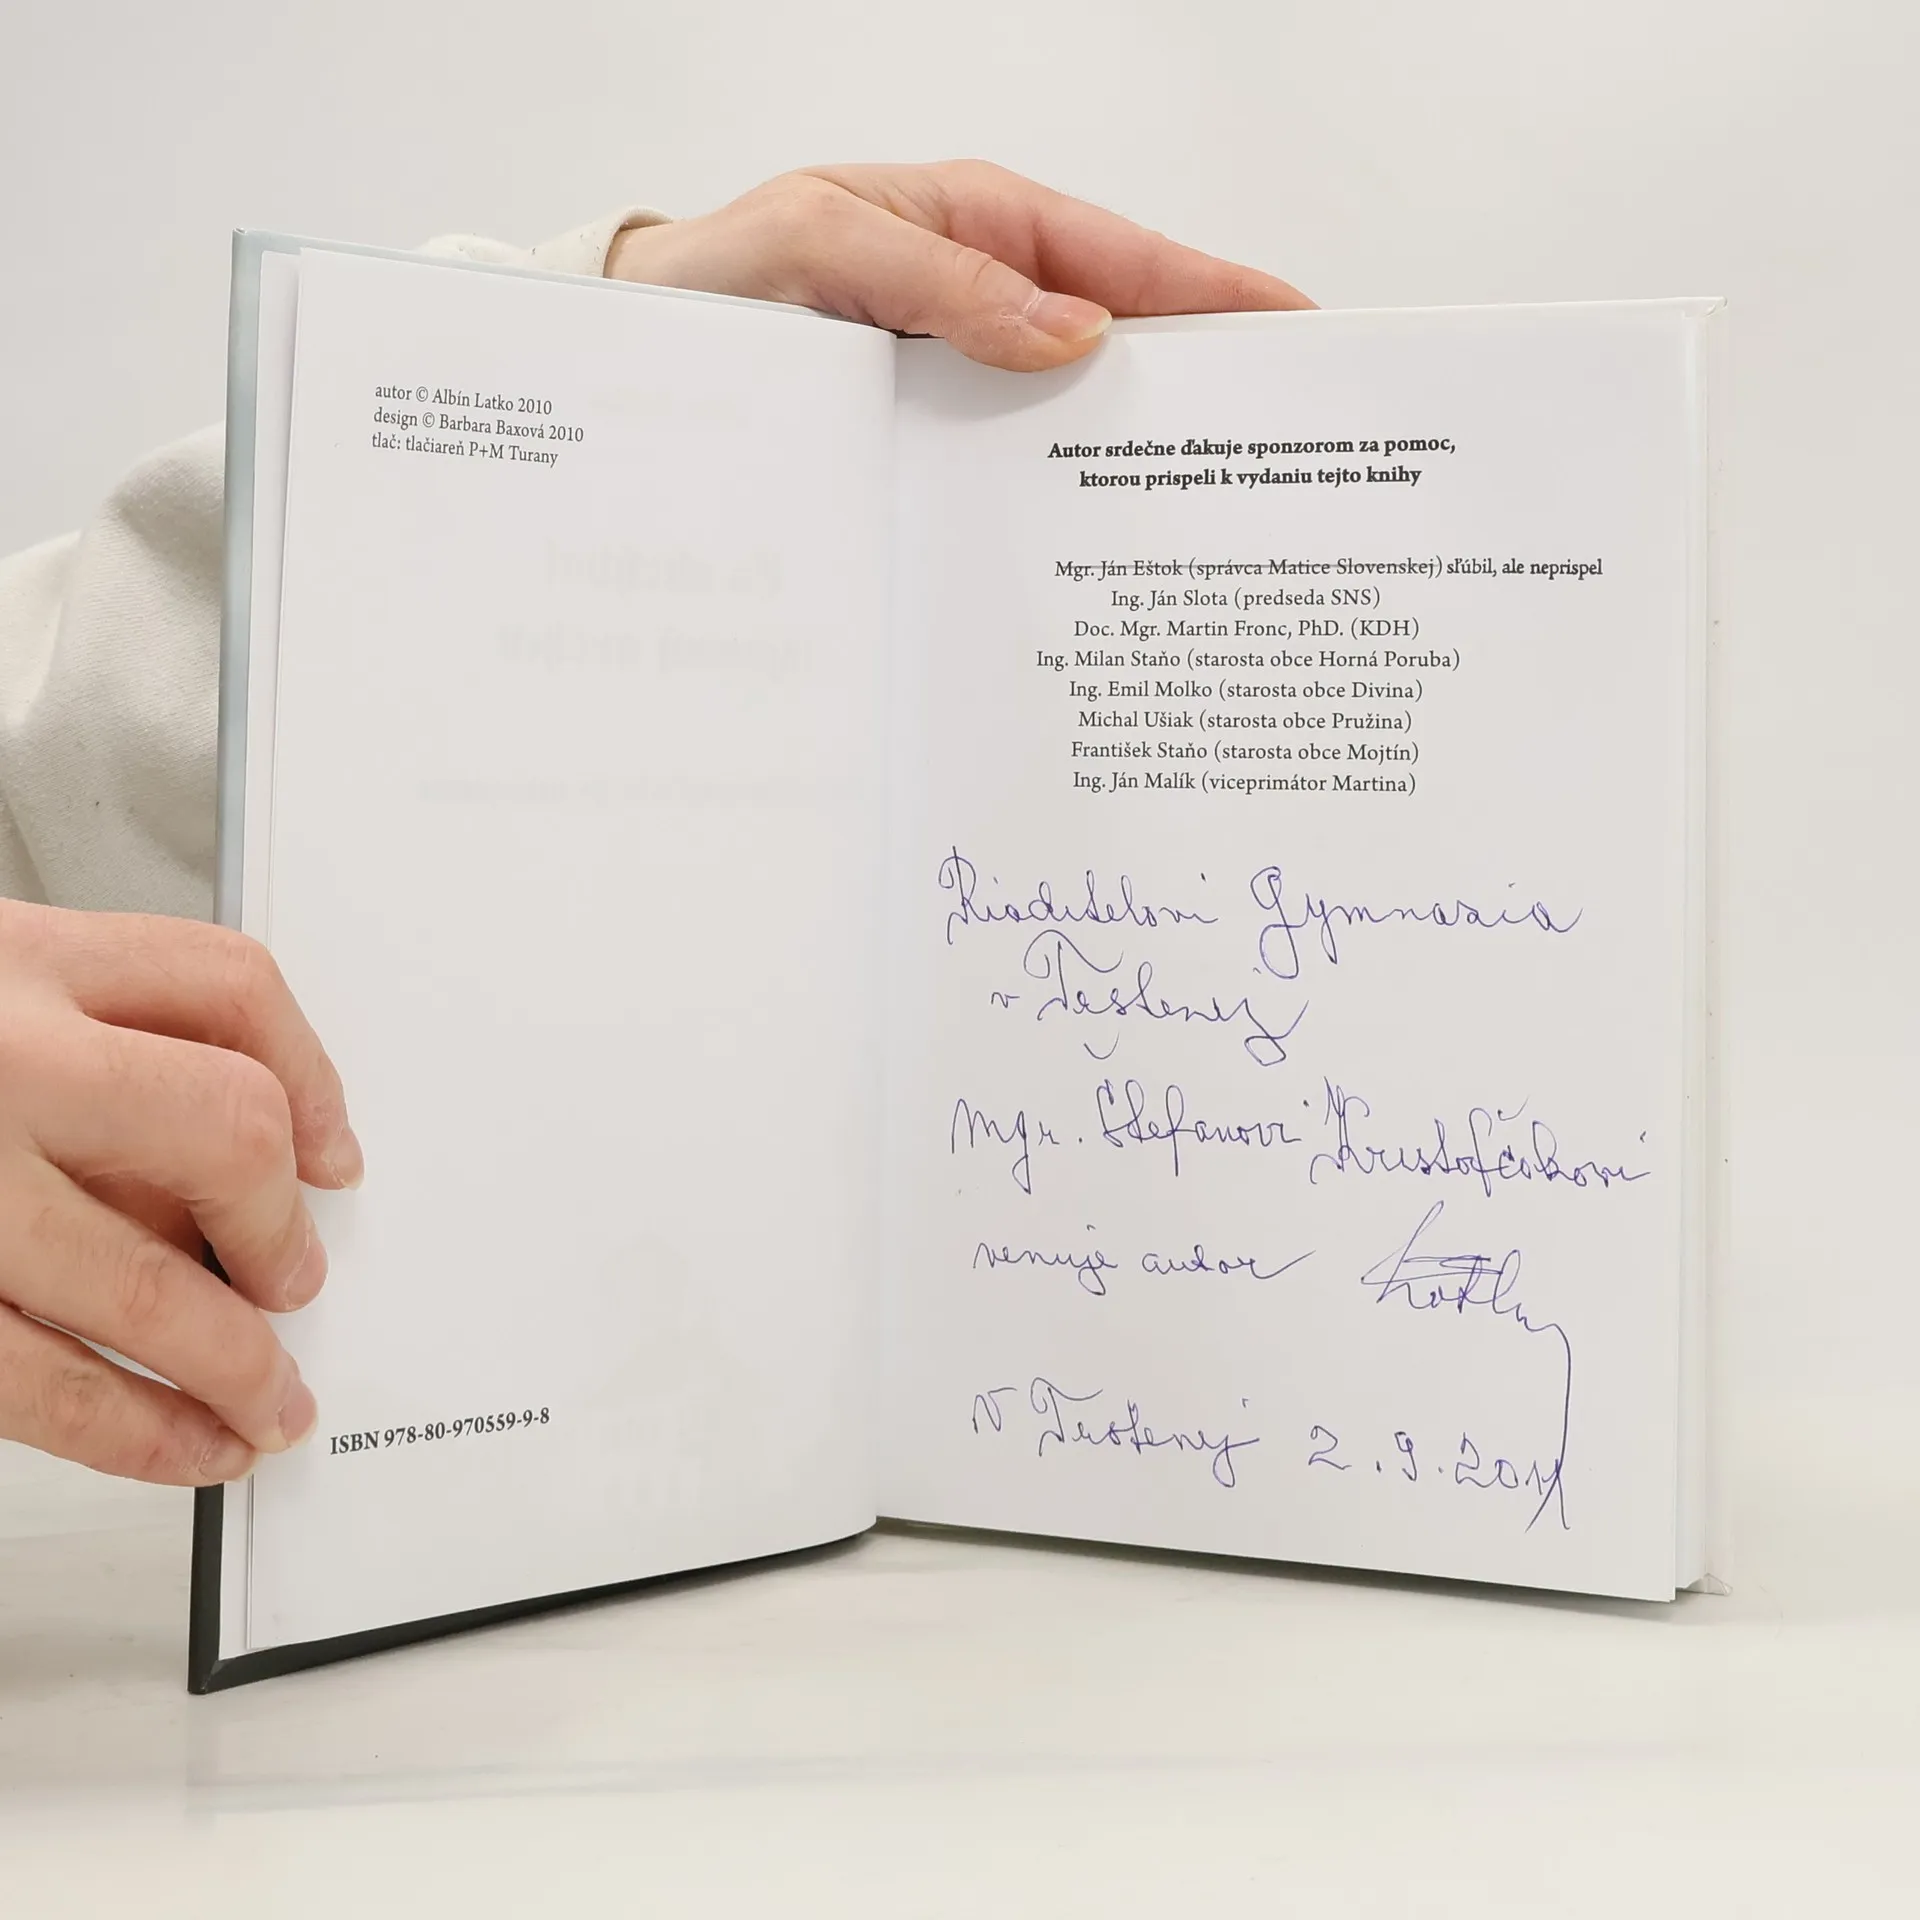 autor © Albín Latko 2010
design © Barbara Baxová 2010
tlač: tlačiareň P+M Turany
ISBN 978-80-970559-9-8
Autor srdečne ďakuje sponzorom za pomoc,
ktorou prispeli k vydaniu tejto knihy
Mgr. Ján Eštok (správca Matice Slovenskej) sľúbil, ale neprispel
Ing. Ján Slota (predseda SNS)
Doc. Mgr. Martin Fronc, PhD. (KDH)
Ing. Milan Staňo (starosta obce Horná Poruba)
Ing. Emil Molko (starosta obce Divina)
Michal Ušiak (starosta obce Pružina)
František Staňo (starosta obce Mojtín)
Ing. Ján Malík (viceprimátor Martina)
Riaditelovi Gymnazia
v
Mgr. Štefanovi Kristofčákovi
venuje autor
V 2.9.2011